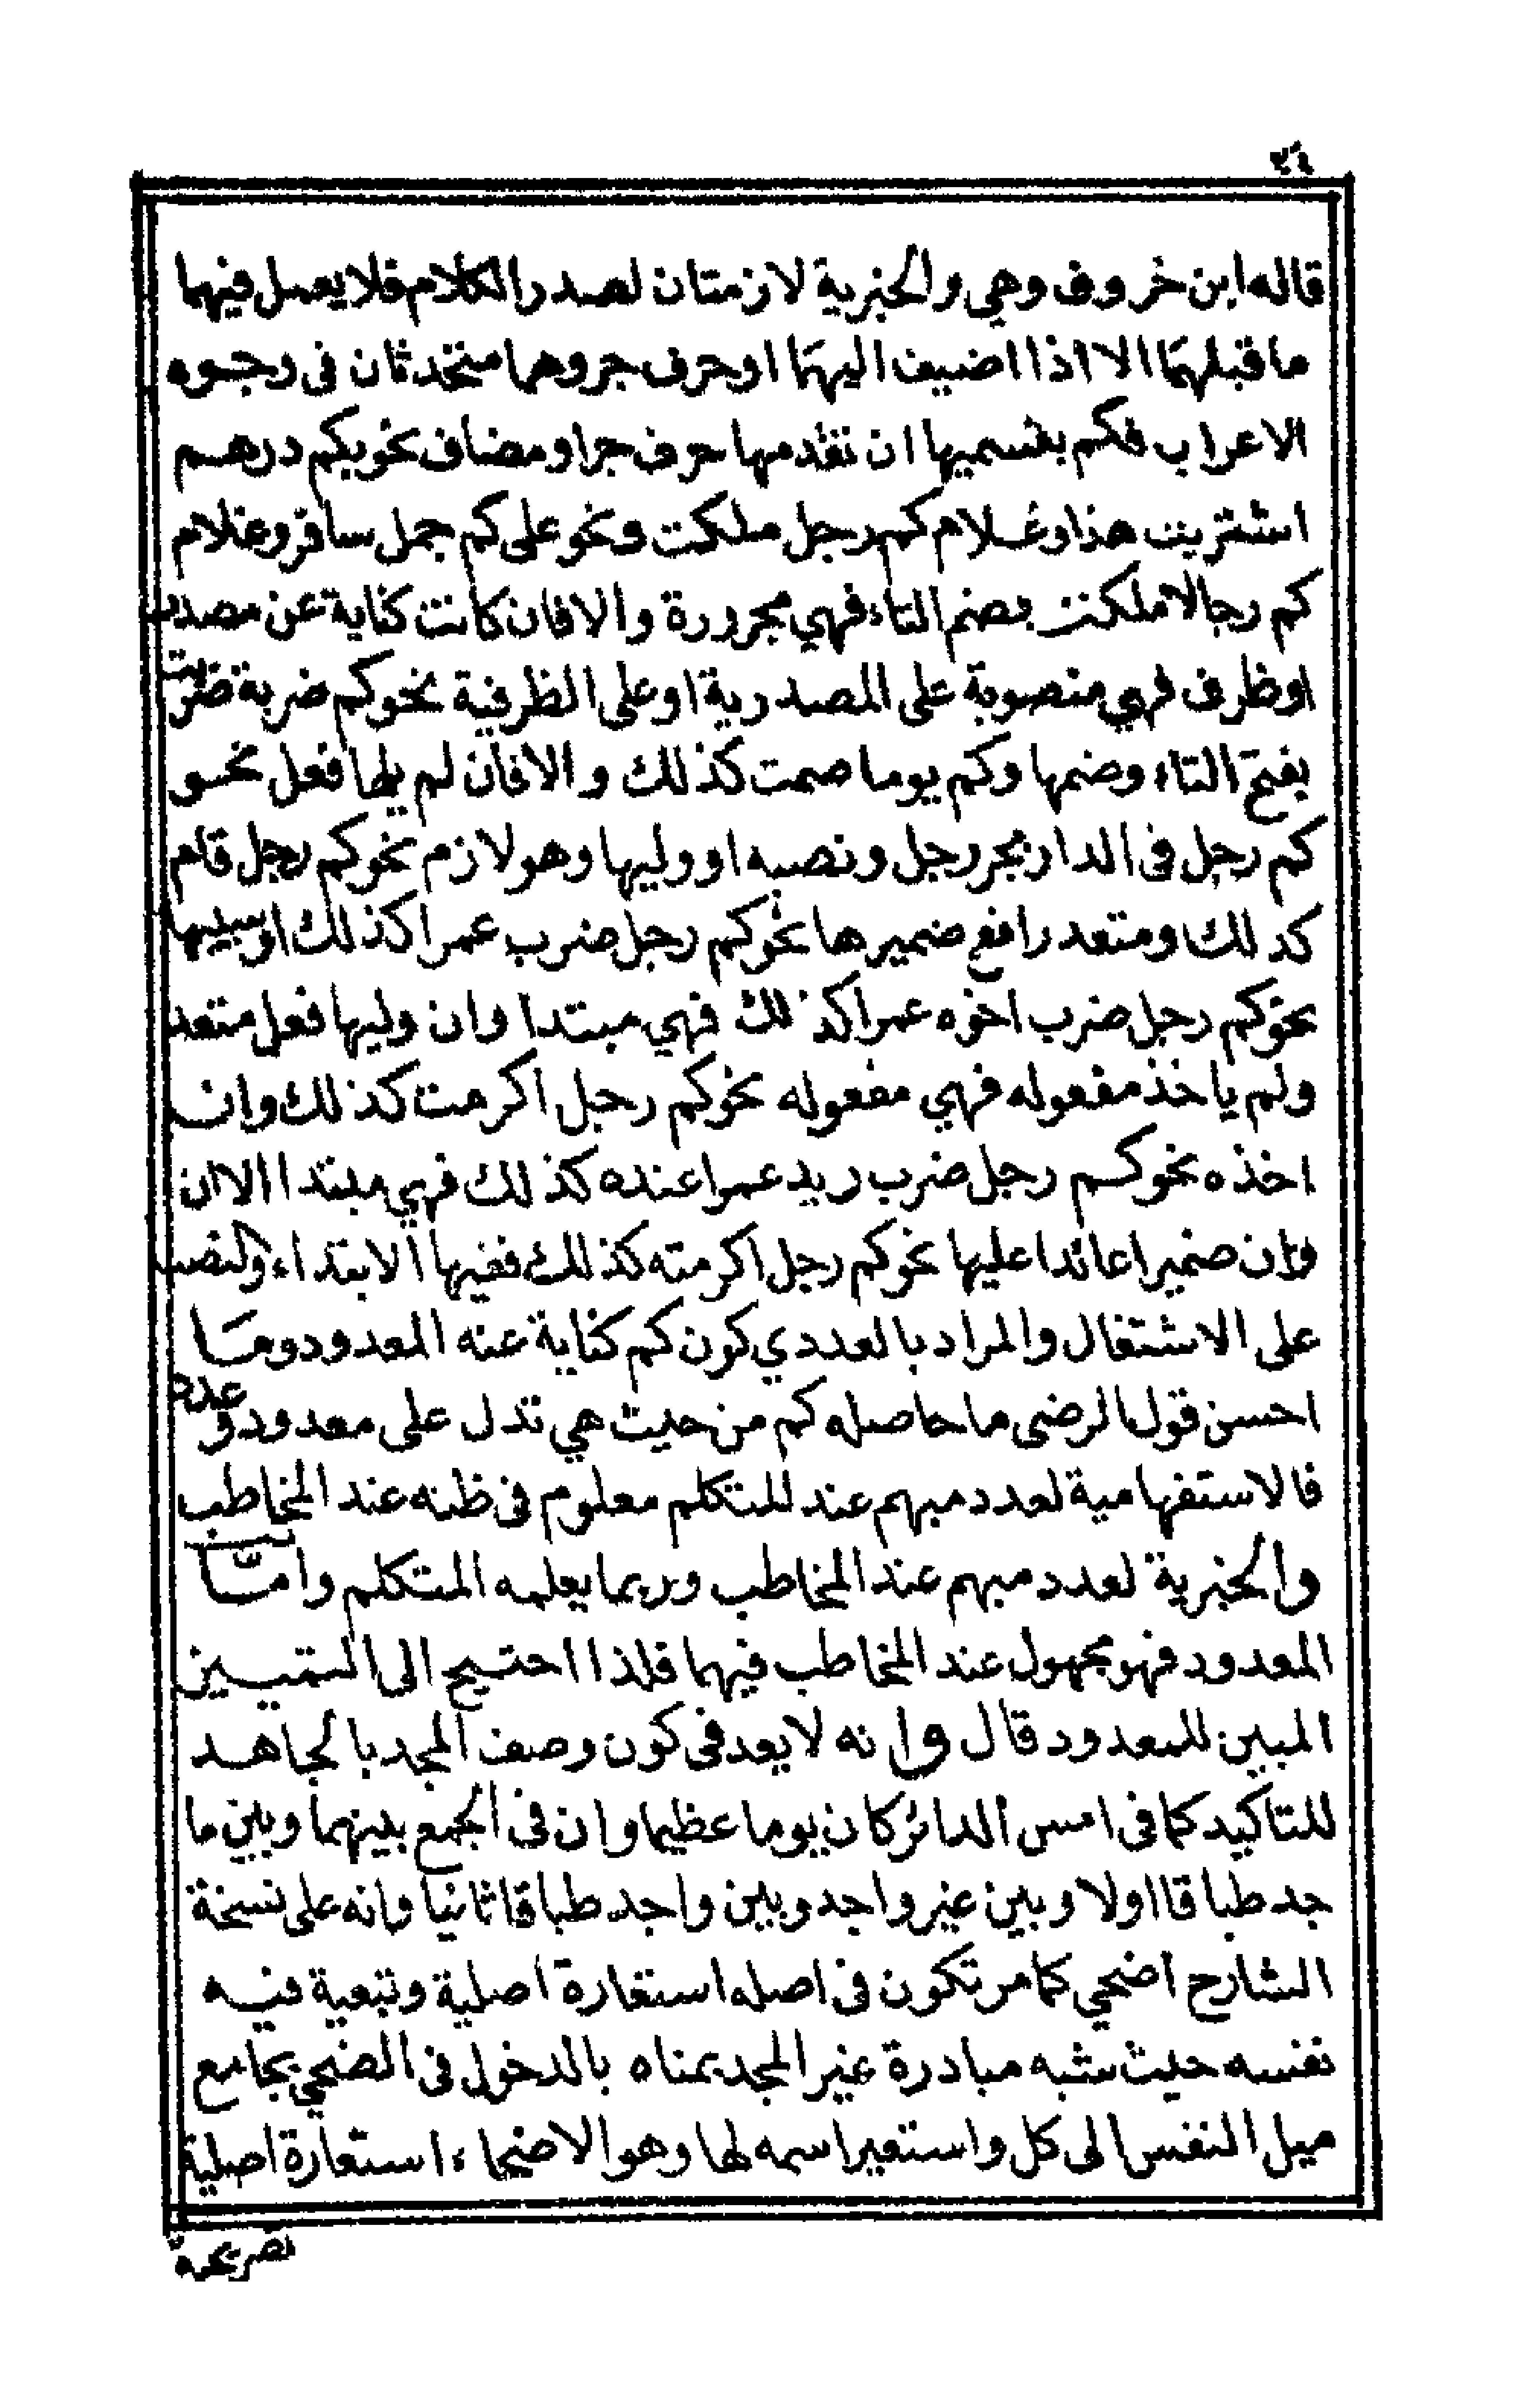 ٢٤
قاله ابن خروف وهي والخبرية لازمتان لصدر الكلام فلا يعمل فيهما
ما قبلهما الا اذا اضيف اليهما او حرف جر وهما متحدثان فى وجوه
الاعراب فكم بقسميها ان تقدمها حرف جر او مضاف نحو بكم درهم
اشتريت هذا وغلام كم رجل ملكت ونحو على كم جمل سافر وغلام
كم رجالا ملكت بضم التاء فهي مجرورة والا فان كانت كناية عن مصدر
او ظرف فهي منصوبة على المصدرية او على الظرفية نحو كم ضربة ضربت
بفتح التاء وضمها وكم يوما صمت كذلك والا فان لم يلها فعل نحو
كم رجل فى الدار بجر رجل ونصبه او وليها وهو لازم نحو كم رجل قام
كذلك ومتعد رافع ضميرها نحو كم رجل ضرب عمرا كذلك او سببيها
نحو كم رجل ضرب اخوه عمرا كذلك فهي مبتدا وان وليها فعل متعد
ولم ياخذ مفعوله فهي مفعوله نحو كم رجل اكرمت كذلك وان
اخذه نحو كم رجل ضرب زيد عمرا عنده كذلك فهي مبتدا الا ان
وان ضميرا عائدا عليها نحو كم رجل اكرمته كذلك ففيها الابتداء والنصب
على الاشتغال والمراد بالعددي كون كم كناية عنه المعدود وما
احسن قول الرضى ما حاصله كم من حيث هي تدل على معدود وعدد
فالاستفهامية لعدد مبهم عند المتكلم معلوم فى ظنه عند المخاطب
والخبرية لعدد مبهم عند المخاطب وربما يعلمه المتكلم واما
المعدود فهو مجهول عند المخاطب فيهما فلذا احتيج الى التمييز
المبين للمعدود قال وانه لا يعد فى كون وصف المجد بالجاهد
للتاكيد كما فى امس الدائر كان يوما عظيما وان فى الجمع بينهما وبين ما
جد طباقا اولا وبين غير واجد وبين واجد طباقا ثانيا وانه على نسخة
الشارح اضحي كما مر تكون فى اصله استعارة اصلية وتبعية فيه
نفسه حيث شبه مبادرة غير المجد بمناه بالدخول فى الضحي بجامع
ميل النفس الى كل واستعير اسمه لها وهو الاضحاء استعارة اصلية
تصريحية